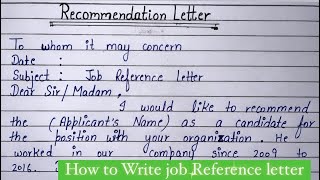 Recommendation Letter
To whom it may concern
Date :
Subject : Job Reference letter
Dear Sir/Madam,
I would like to recommend
the (Applicant's Name) as a candidate for
the position with your organization. He
worked in our company since 2009 to
2016.
How to Write job Reference letter